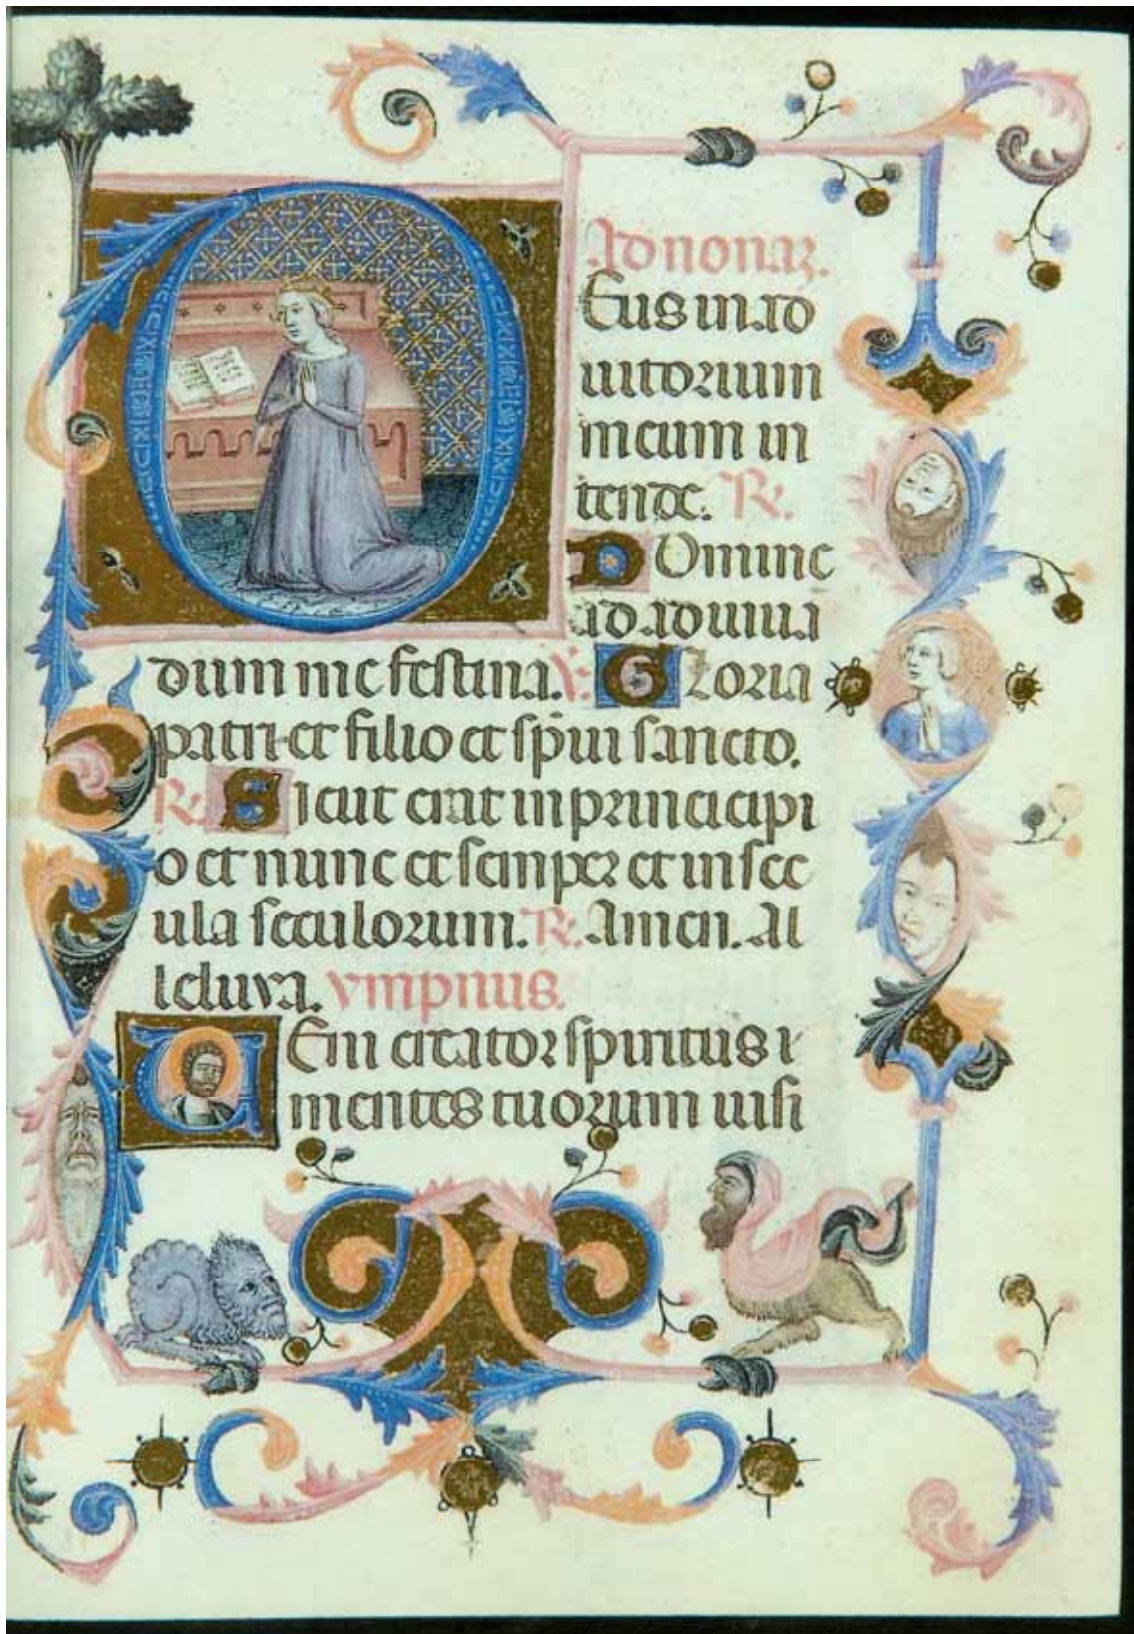 Ad nonaz.
Eus in ad
iutorium
meum in
tende. R.
Domine
ad adiuua
dum me festina. V. Gloria
patri et filio et spui sancto.
R. Sicut erat in principi
o et nunc et semper et in sec
ula seculorum. R. Amen. Al
leluya. ympnus.
Ueni creator spiritus
mentes tuorum uisi